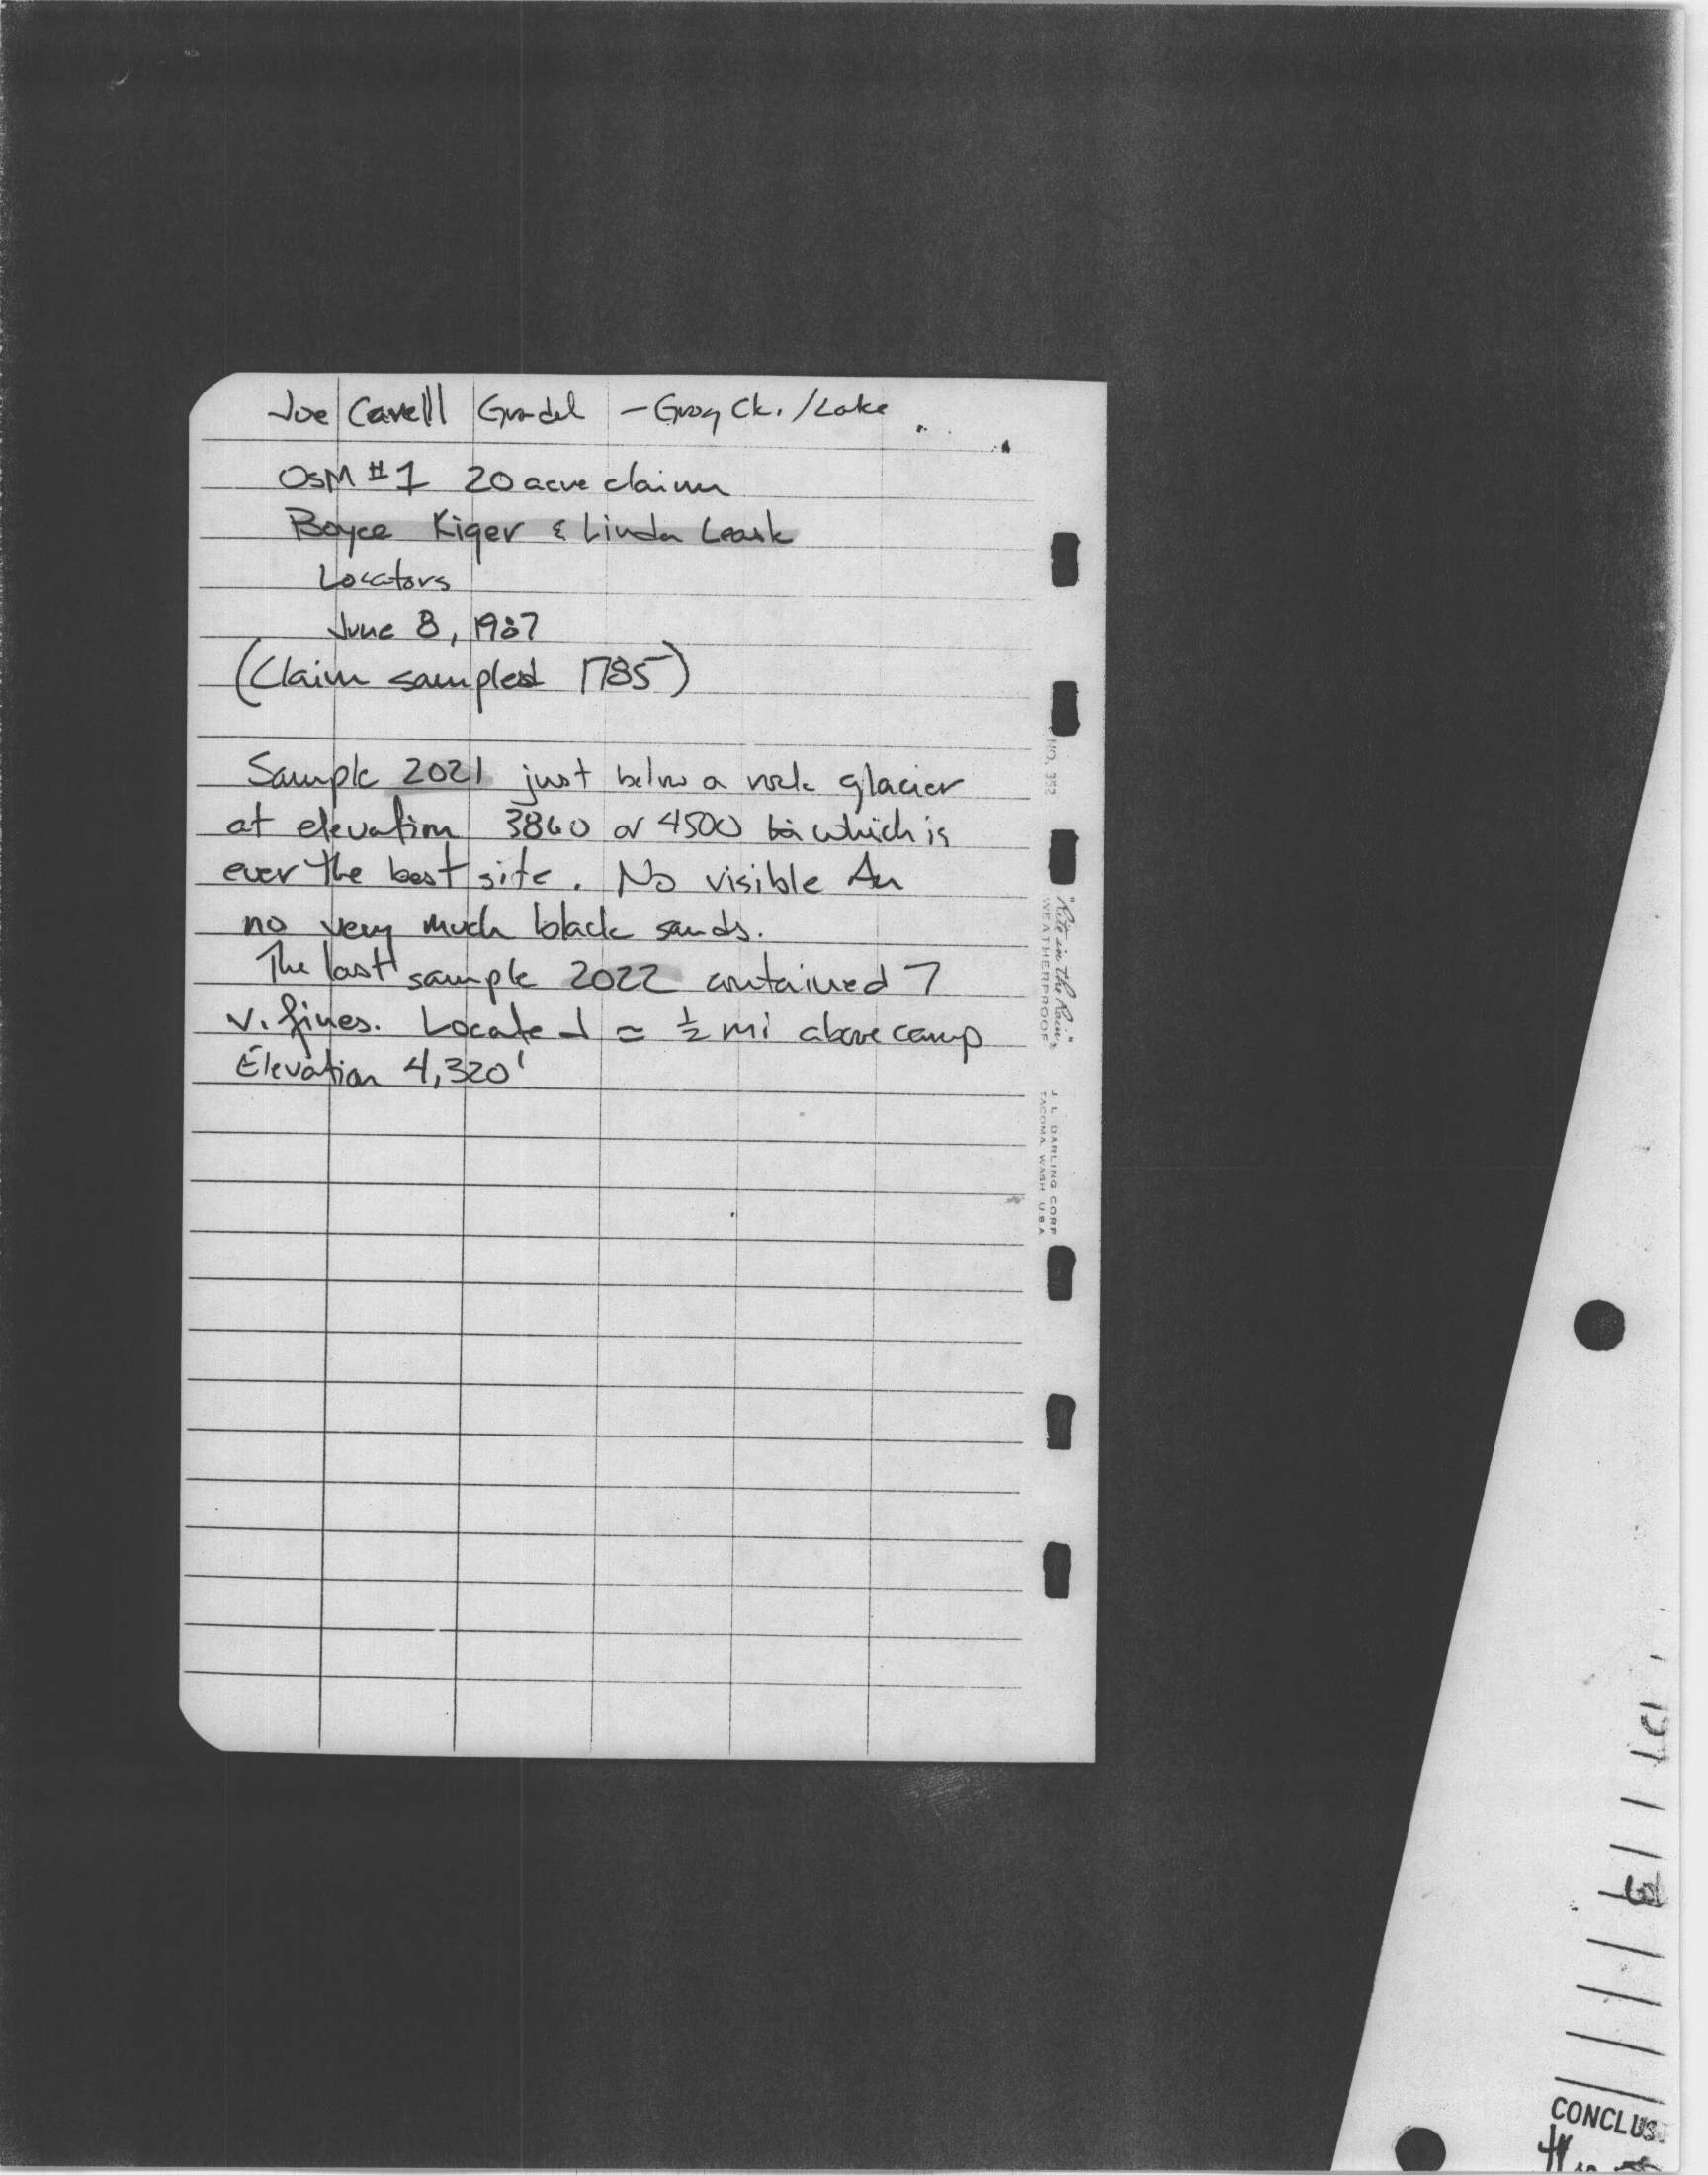 Joe Cavell Grudel - Grog Ck. / Lake
OSM #1 20 acre claim
Boyce Kiger & Linda Leask
Locators
June 8, 1987
(Claim sampled 1785)
Sample 2021 just below a rock glacier
at elevation 3860 or 4500 which is
ever the best site. No visible Au
no very much black sands.
The last sample 2022 contained 7
v. fines. Located ≈ ½ mi above camp
Elevation 4,320'
NO. 352
"Rite in the Rain"
WEATHERPROOF
J. L. DARLING CORP
TACOMA, WASH U.S.A
CONCLUS